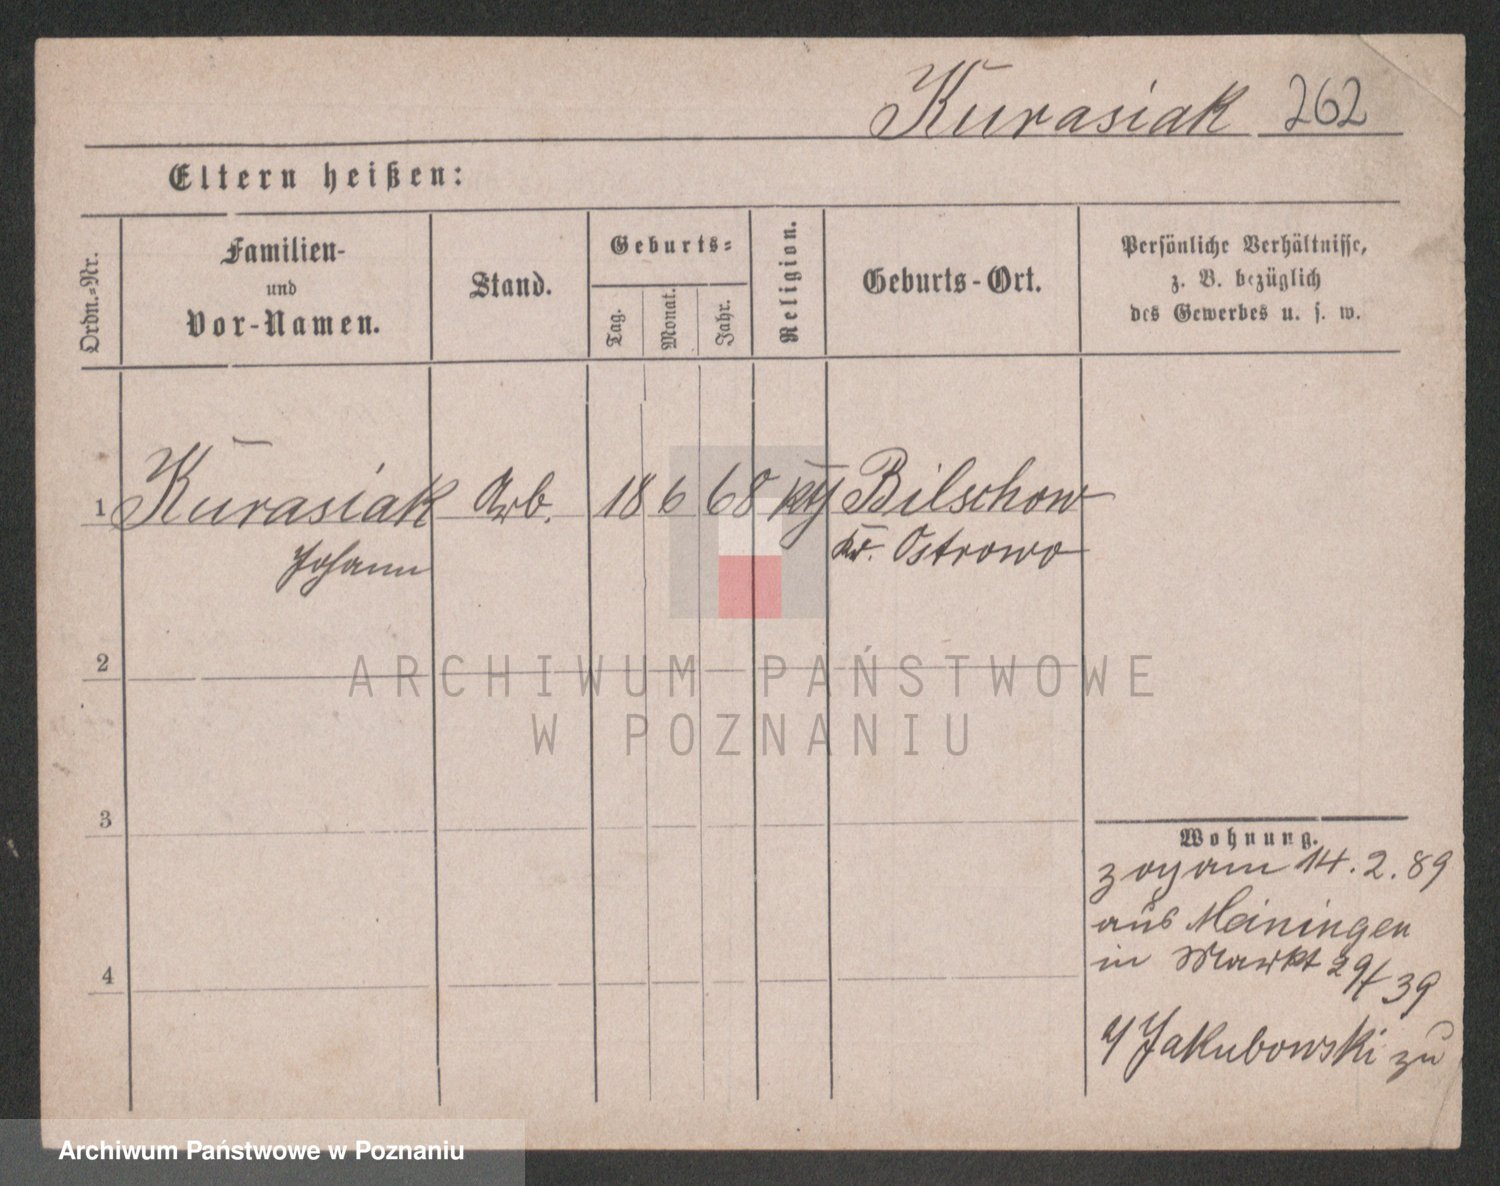 Kurasiak 262
Eltern heißen:
Ordn.-Nr.
Familien-
und
Vor-Namen.
Stand.
Geburts-
Tag.
Monat.
Jahr.
Religion.
Geburts-Ort.
Persönliche Verhältnisse,
z. B. bezüglich
des Gewerbes u. s. w.
1 Kurasiak Arb. 18 6 68 Bilschow
Johann Kr. Ostrowo
2
ARCHIWUM PAŃSTWOWE
W POZNANIU
3
Wohnung.
zog am 14. 2. 89
aus Meiningen
in Markt 39
4
Jakubowski zu
Archiwum Państwowe w Poznaniu